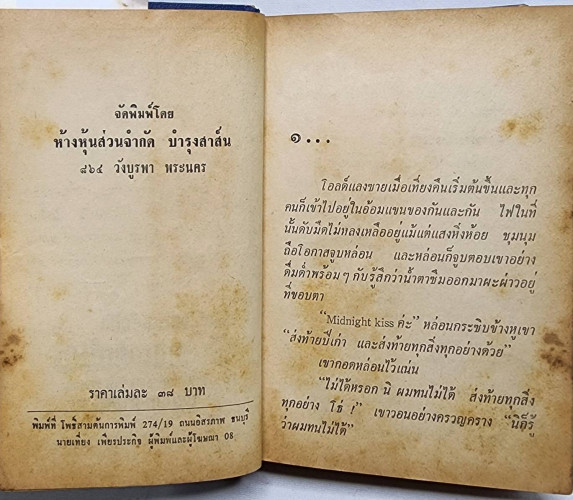 จัดพิมพ์โดย
ห้างหุ้นส่วนจำกัด บำรุงสาส์น
๘๖๔ วังบูรพา พระนคร
ราคาเล่มละ ๓๘ บาท
พิมพ์ที่ โพธิ์สามต้นการพิมพ์ 274/19 ถนนอิสรภาพ ธนบุรี
นายเที่ยง เพียรประกิจ ผู้พิมพ์และผู้โฆษณา 08
๑...
โอลด์แลงซายเมื่อเที่ยงคืนเริ่มต้นขึ้นและทุก
คนก็เข้าไปอยู่ในอ้อมแขนของกันและกัน ไฟในที่
นั้นดับมืดไม่หลงเหลืออยู่แม้แต่แสงหิ่งห้อย ชุมนุม
ถือโอกาสจูบหล่อน และหล่อนก็จูบตอบเขาอย่าง
ดื่มด่ำพร้อมๆ กับรู้สึกว่าน้ำตาซึมออกมาผะผ่าวอยู่
ที่ขอบตา
“Midnight kiss ค่ะ” หล่อนกระซิบข้างหูเขา
“ส่งท้ายปีเก่า และส่งท้ายทุกสิ่งทุกอย่างด้วย”
เขากอดหล่อนไว้แน่น
“ไม่ได้หรอก นิ ผมทนไม่ได้ ส่งท้ายทุกสิ่ง
ทุกอย่าง โธ่ !” เขาวอนอย่างครวญคราง “นิก็รู้
ว่าผมทนไม่ได้”